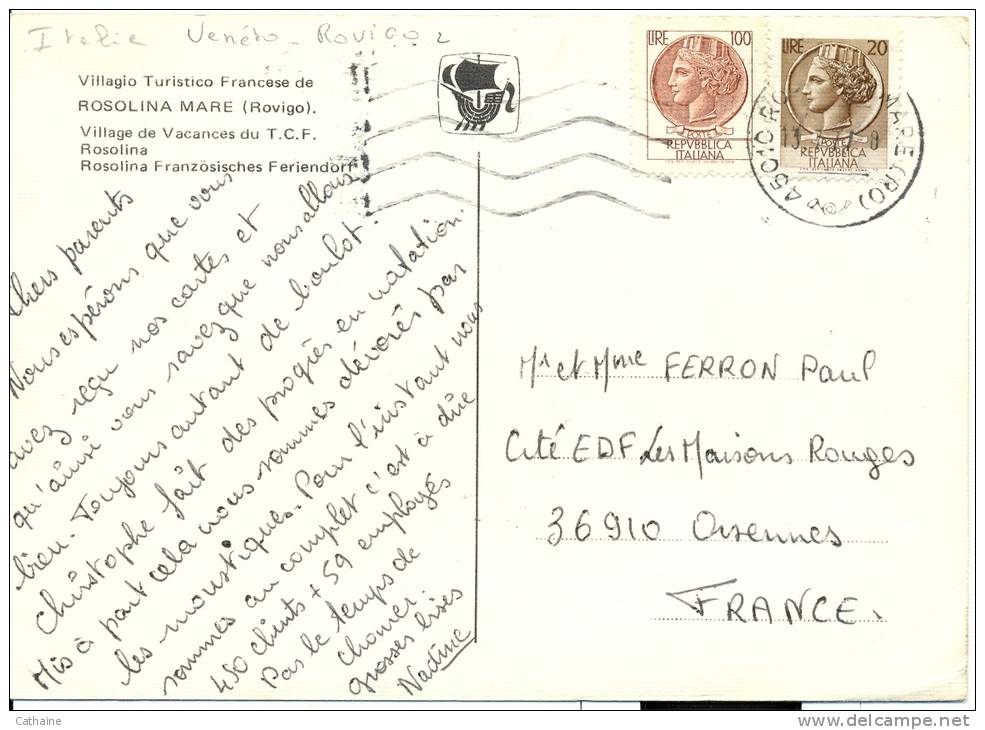 Italie Venéto - Rovigo 2
Villagio Turistico Francese de
ROSOLINA MARE (Rovigo).
Village de Vacances du T.C.F.
Rosolina
Rosolina Französisches Feriendorf
LIRE 100
POSTE
REPVBBLICA
ITALIANA
LIRE 20
POSTE
REPVBBLICA
ITALIANA
45010 RO MARE (RO)
Chers parents
Nous espérons que vous
avez reçu nos cartes et
qu'ainsi vous savez que nous allons
bien. Toujours autant de boulot.
Christophe fait des progrès en natation.
Mis à part cela nous sommes dévorés par
les moustiques. Pour l'instant nous
sommes au complet c'est à dire
450 clients + 59 employés
Pas le temps de
chomer.
grosses bises
Nadine
Mr et Mme FERRON Paul
Cité EDF. Les Maisons Rouges
36910 Orsennes
FRANCE.
Cathaine
www.delcampe.net